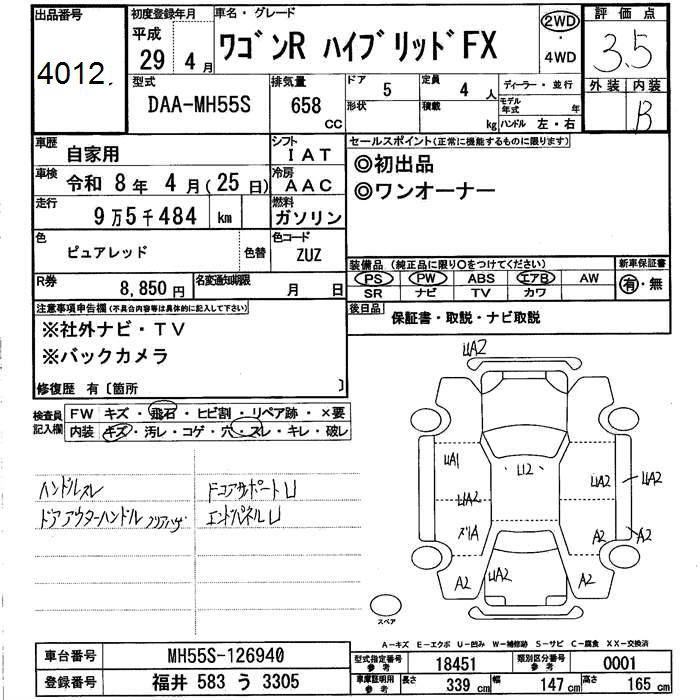 出品番号
4012.
初度登録年月
平成
29 4月
車名・グレード
ワゴンR ハイブリッドFX
2WD
・
4WD
評価点
3.5
外装 内装
B
型式
DAA-MH55S
排気量
658
CC
ドア
5
形状
定員
4 人
積載
kg
ディーラー・並行
モデル年式 年
ハンドル 左・右
車歴
自家用
シフト
IAT
車検
令和 8年 4月(25日)
冷房
AAC
走行
9万5千484 km
燃料
ガソリン
色
ピュアレッド
色替
色コード
ZUZ
R券
8,850円
名変通知期限
月 日
セールスポイント(正常に機能するものに限ります)
◎初出品
◎ワンオーナー
装備品 (純正品に限り○をつけてください)
新車保証書
PS PW ABS エアB AW
有・無
SR ナビ TV カワ
後日品
保証書・取説・ナビ取説
注意事項申告欄(不具合内容等は具体的に記入して下さい)
※社外ナビ・TV
※バックカメラ
修復歴 有〔箇所 〕
検査員
記入欄
FW キズ・飛石・ヒビ割・リペア跡・×要
内装 キズ・汚レ・コゲ・穴・スレ・キレ・破レ
ハンドルスレ
ドアアウターハンドル
コアサポートU
エンドパネルU
UA2
UA1
U2
UA2
UA2
UA2
A2
A2
A2
UA2
A2
スペア
A-キズ E-エクボ U-凹み W-補修跡 S-サビ C-腐食 XX-交換済
車台番号
MH55S-126940
登録番号
福井 583 う 3305
型式指定番号
参考
18451
類別区分番号
参考
0001
車庫証明用
参考
長さ
339 cm
幅
147 cm
高さ
165 cm